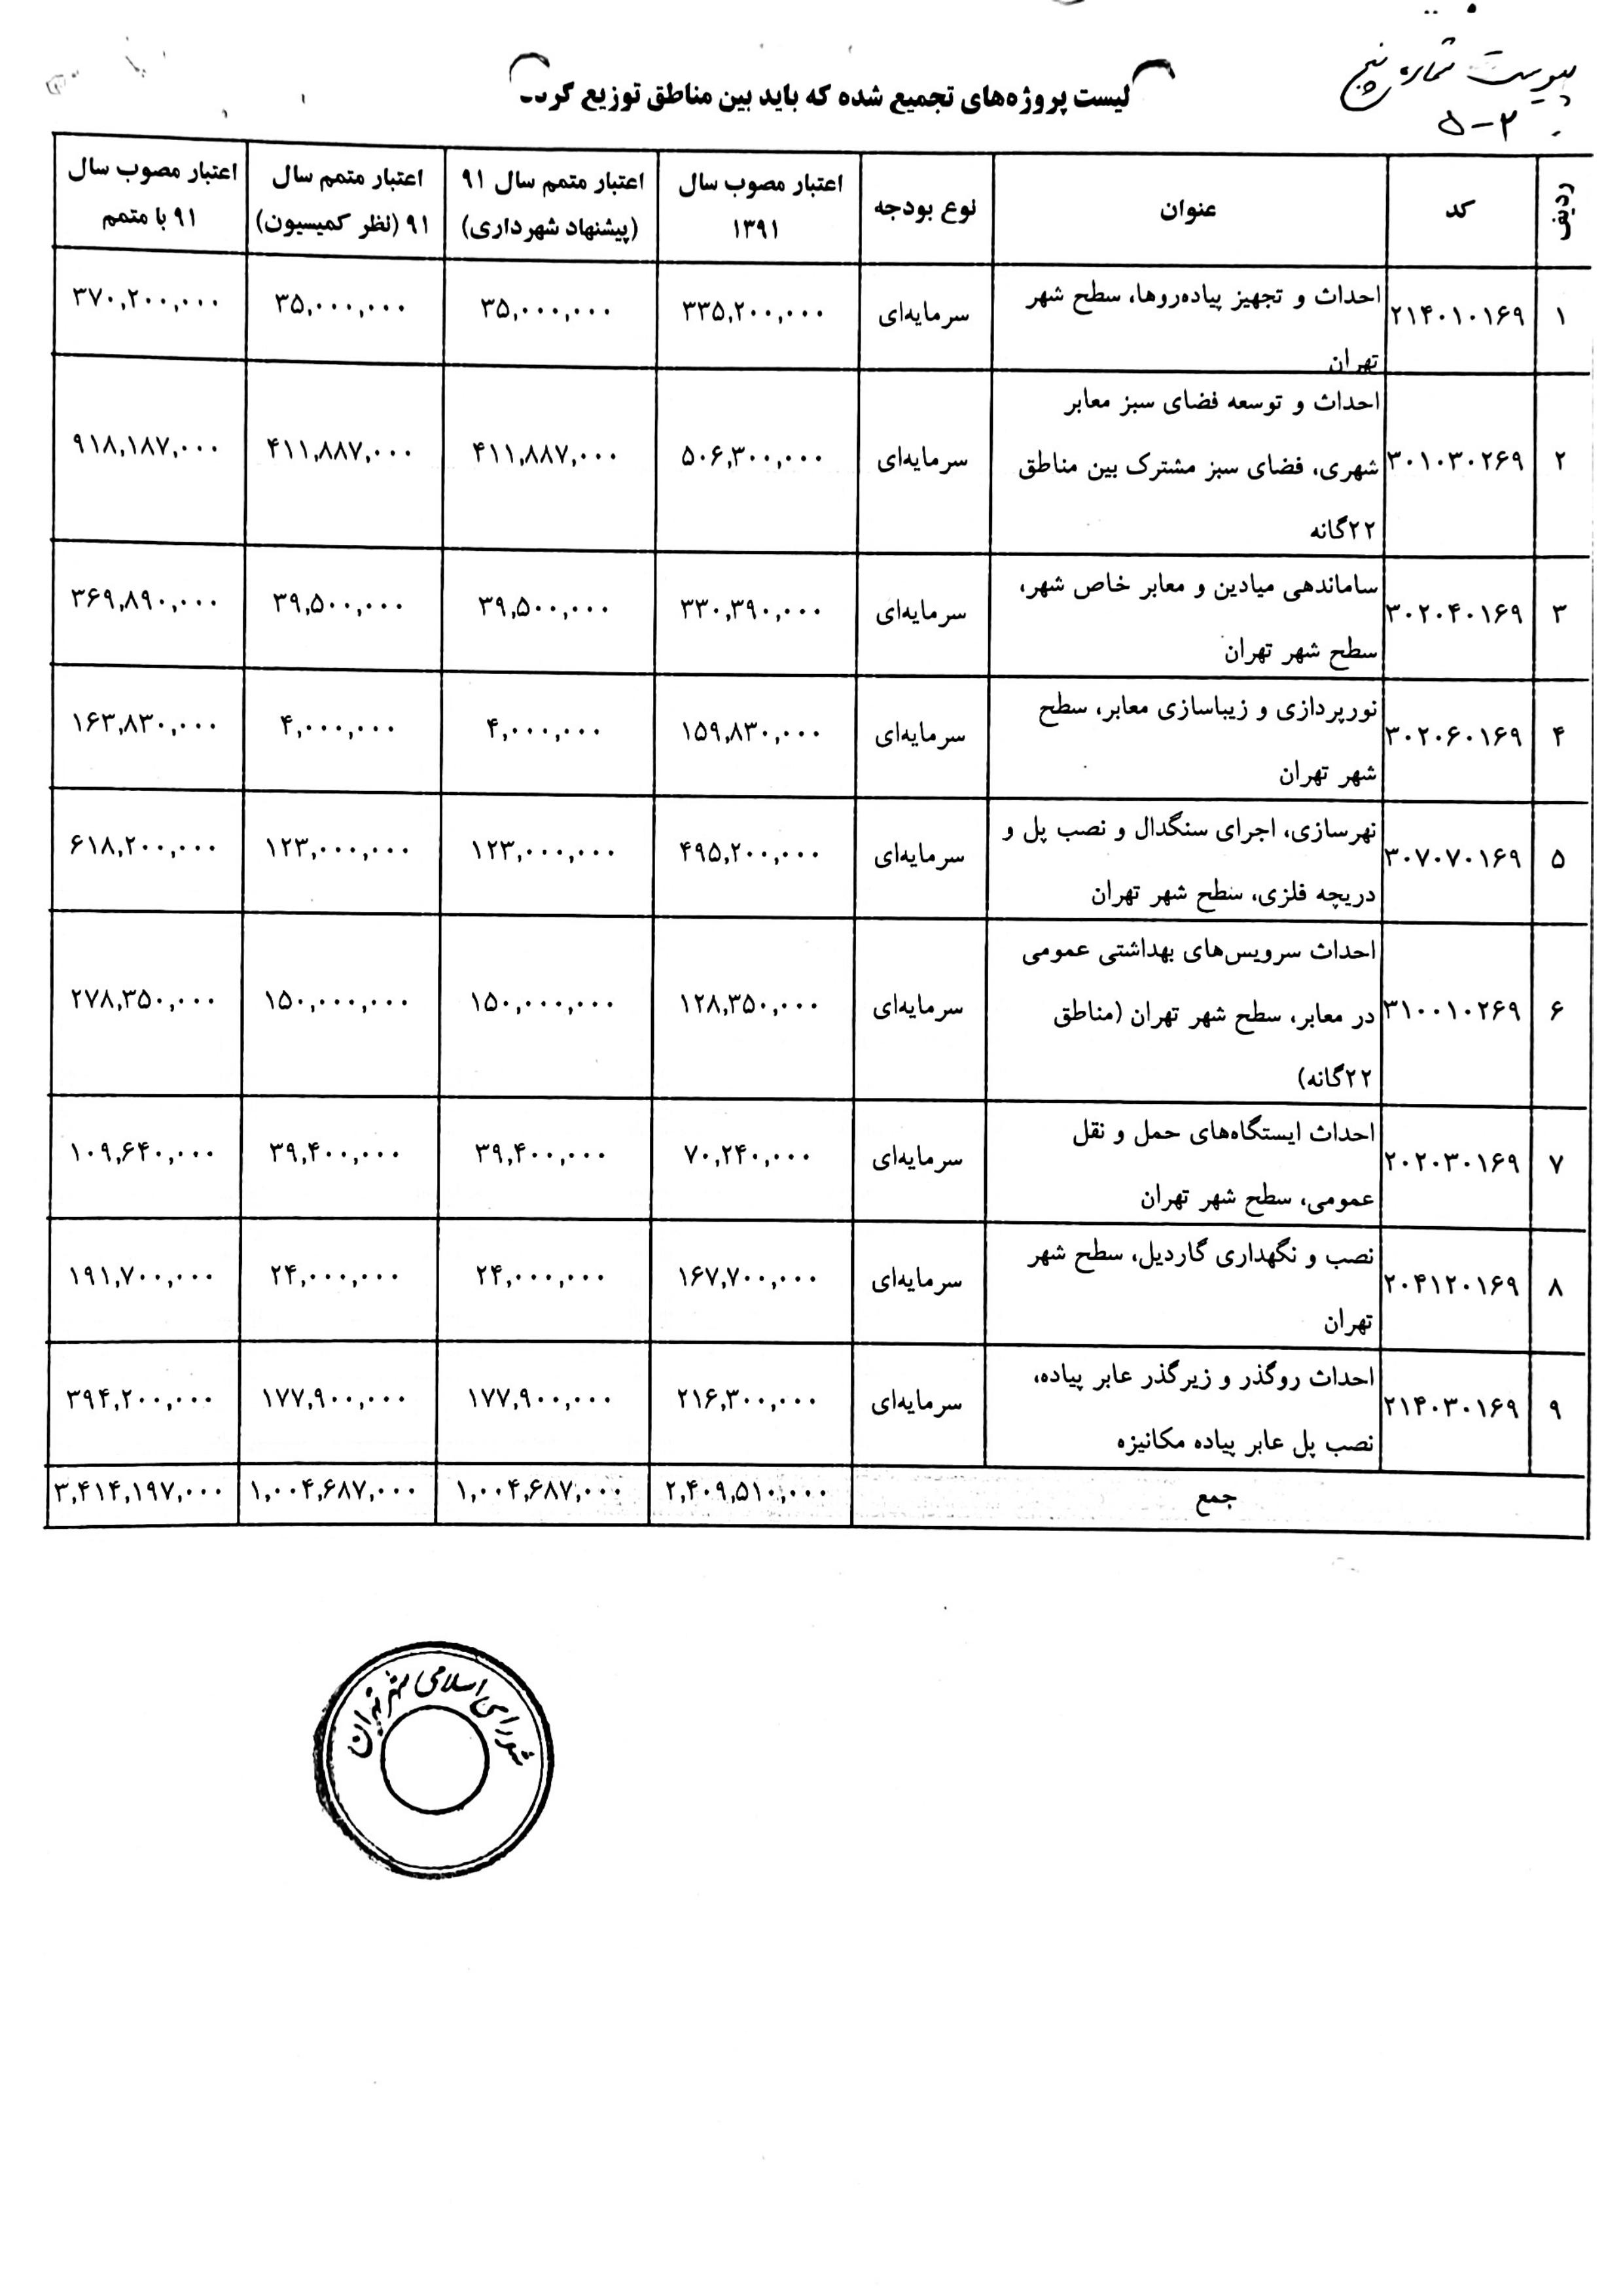 پیوست شماره پنج
۵-۲
لیست پروژه‌های تجمیع شده که باید بین مناطق توزیع
ردیف کد عنوان نوع بودجه اعتبار مصوب سال ۱۳۹۱ اعتبار متمم سال ۹۱ (پیشنهاد شهرداری) اعتبار متمم سال ۹۱ (نظر کمیسیون) اعتبار مصوب سال ۹۱ با متمم
۱ ۲۱۴۰۱۰۱۶۹ احداث و تجهیز پیاده‌روها، سطح شهر سرمایه‌ای ۳۳۵,۲۰۰,۰۰۰ ۳۵,۰۰۰,۰۰۰ ۳۵,۰۰۰,۰۰۰ ۳۷۰,۲۰۰,۰۰۰
تهران
احداث و توسعه فضای سبز معابر
۲ ۳۰۱۰۳۰۲۶۹ شهری، فضای سبز مشترک بین مناطق سرمایه‌ای ۵۰۶,۳۰۰,۰۰۰ ۴۱۱,۸۸۷,۰۰۰ ۴۱۱,۸۸۷,۰۰۰ ۹۱۸,۱۸۷,۰۰۰
۲۲گانه
۳ ۳۰۲۰۴۰۱۶۹ ساماندهی میادین و معابر خاص شهر، سرمایه‌ای ۳۳۰,۳۹۰,۰۰۰ ۳۹,۵۰۰,۰۰۰ ۳۹,۵۰۰,۰۰۰ ۳۶۹,۸۹۰,۰۰۰
سطح شهر تهران
۴ ۳۰۲۰۶۰۱۶۹ نورپردازی و زیباسازی معابر، سطح سرمایه‌ای ۱۵۹,۸۳۰,۰۰۰ ۴,۰۰۰,۰۰۰ ۴,۰۰۰,۰۰۰ ۱۶۳,۸۳۰,۰۰۰
شهر تهران
۵ ۳۰۷۰۷۰۱۶۹ نهرسازی، اجرای سنگدال و نصب پل و سرمایه‌ای ۴۹۵,۲۰۰,۰۰۰ ۱۲۳,۰۰۰,۰۰۰ ۱۲۳,۰۰۰,۰۰۰ ۶۱۸,۲۰۰,۰۰۰
دریچه فلزی، سطح شهر تهران
احداث سرویس‌های بهداشتی عمومی
۶ ۳۱۰۰۱۰۲۶۹ در معابر، سطح شهر تهران (مناطق سرمایه‌ای ۱۲۸,۳۵۰,۰۰۰ ۱۵۰,۰۰۰,۰۰۰ ۱۵۰,۰۰۰,۰۰۰ ۲۷۸,۳۵۰,۰۰۰
۲۲گانه)
۷ ۲۰۲۰۳۰۱۶۹ احداث ایستگاه‌های حمل و نقل سرمایه‌ای ۷۰,۲۴۰,۰۰۰ ۳۹,۴۰۰,۰۰۰ ۳۹,۴۰۰,۰۰۰ ۱۰۹,۶۴۰,۰۰۰
عمومی، سطح شهر تهران
۸ ۲۰۴۱۲۰۱۶۹ نصب و نگهداری گاردیل، سطح شهر سرمایه‌ای ۱۶۷,۷۰۰,۰۰۰ ۲۴,۰۰۰,۰۰۰ ۲۴,۰۰۰,۰۰۰ ۱۹۱,۷۰۰,۰۰۰
تهران
۹ ۲۱۴۰۳۰۱۶۹ احداث روگذر و زیرگذر عابر پیاده، سرمایه‌ای ۲۱۶,۳۰۰,۰۰۰ ۱۷۷,۹۰۰,۰۰۰ ۱۷۷,۹۰۰,۰۰۰ ۳۹۴,۲۰۰,۰۰۰
نصب پل عابر پیاده مکانیزه
جمع ۲,۴۰۹,۵۱۰,۰۰۰ ۱,۰۰۴,۶۸۷,۰۰۰ ۱,۰۰۴,۶۸۷,۰۰۰ ۳,۴۱۴,۱۹۷,۰۰۰
شورای اسلامی شهر تهران